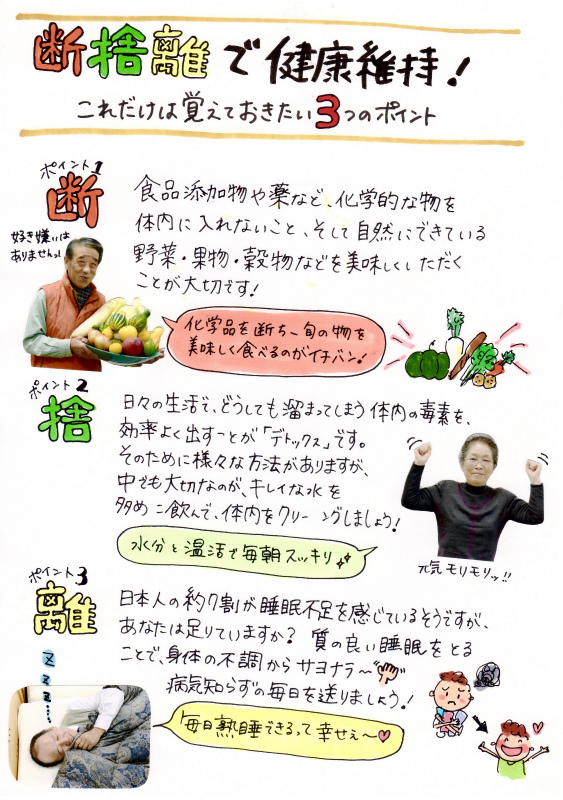 断捨離で健康維持!
これだけは覚えておきたい3つのポイント
ポイント1
断
好き嫌いは
ありませんっ!
食品添加物や薬など、化学的な物を
体内に入れないこと、そして自然にできている
野菜・果物・穀物などを美味しくいただく
ことが大切です!
化学品を断ち、旬の物を
美味しく食べるのがイチバン!
ポイント2
捨
日々の生活で、どうしても溜まってしまう体内の毒素を、
効率よく出すことが「デトックス」です。
そのために様々な方法がありますが、
中でも大切なのが、キレイな水を
多め 二飲んで、体内をクリー ングしましょう!
水分と温活で毎朝スッキリ
元気モリモリッ!!
ポイント3
離
日本人の約7割が睡眠不足を感じているそうですが、
あなたは足りていますか? 質の良い睡眠をとる
ことで、身体の不調からサヨナラ〜
病気知らずの毎日を送りましょう!
ZZZ....
毎日熟睡できるって幸せぇ〜♡